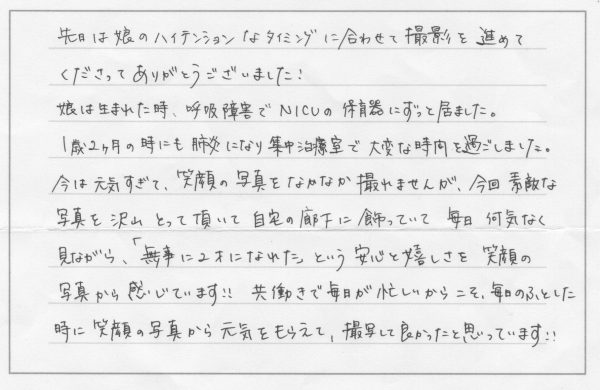 先日は娘のハイテンションなタイミングに合わせて撮影を進めて
くださってありがとうございました!
娘は生まれた時、呼吸障害でNICUの保育器にずっと居ました。
1歳2ヶ月の時にも肺炎になり集中治療室で大変な時間を過ごしました。
今は元気すぎて、笑顔の写真をなかなか撮れませんが、今回素敵な
写真を沢山とって頂いて自宅の廊下に飾っていて毎日何気なく
見ながら、「無事に2才になれた」という安心と嬉しさを笑顔の
写真から感じています!! 共働きで毎日が忙しいからこそ、毎日のふとした
時に笑顔の写真から元気をもらえて、撮写して良かったと思っています!!